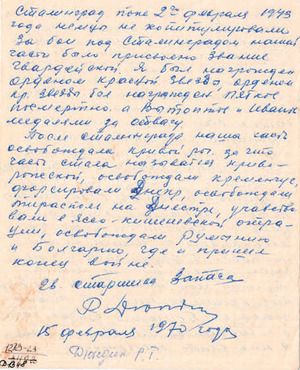 Сталинград пока 2го февраля 1943
года немцы не капитулировали
За бои под Сталинградом нашей
части было присвоено звание
Гвардейской. Я был награжден
орденом красной звезды орденом
кр. звезды был награжден Пятков
посмертно а и Иванк
медалями за отвагу
После сталинграда наша часть
освобождала кривой рог, за что
часть стала называться криво-
рожской, освобождали кременчуг,
форсировали Днепр, освобождали
тирасполь на Днестре, участво
вали в Ясско-кишеневской опера-
ции, освобождали Румынию
и Болгарию где и пришел
конец войне.
Гв старшина запаса
15 февраля 1970 года
Дюндин Р.Г.